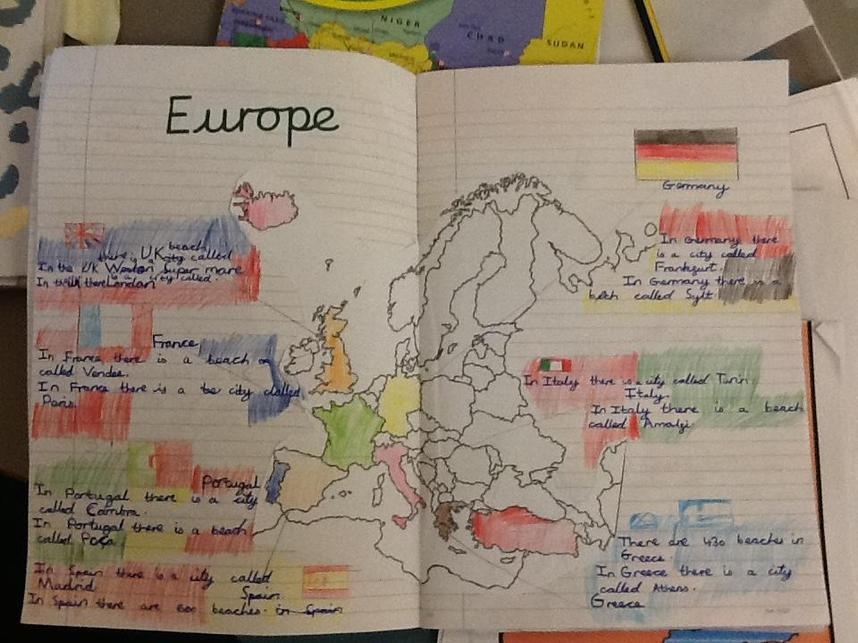 NIGER
CHAD
SUDAN
Europe
UK
beach
there is city called
In the UK Weston Super mare
is a city called
In the UK there London
France
In France there is a beach
called Vendee.
In France there is a be city called
Paris.
Portugal
In Portugal there is a city
called Combra.
In Portugal there is a beach
called
In Spain there is a city called
Madrid
Spain
In Spain there are 600 beaches in Spain
Germany
In Germany there
is a city called
Frankfurt.
In Germany there is a
bech called Sylt.
In Italy there is a city called Turin.
Italy
In Italy there is a beach
called Amalfi
There are 430 beaches in
Greece.
In Greece there is a city
called Athens.
Greece